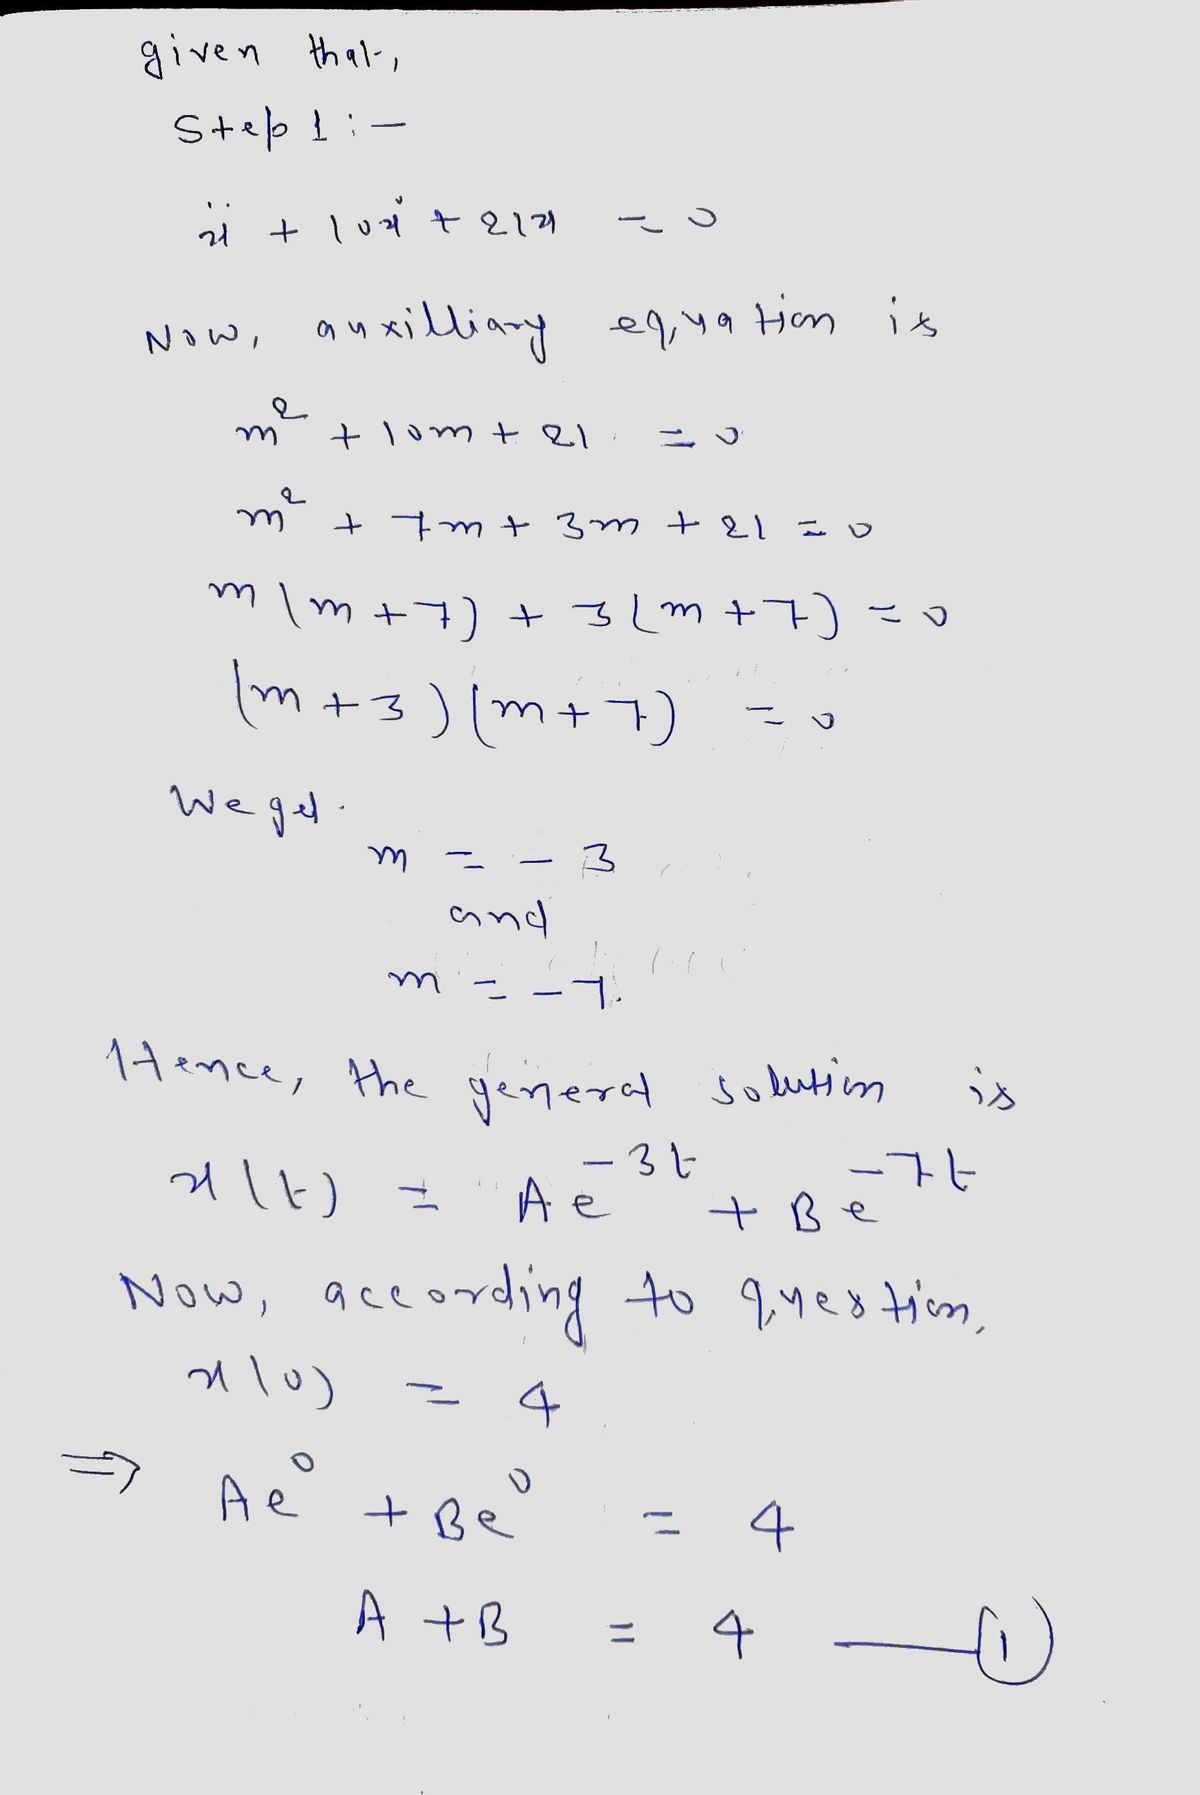 given that,
Step 1 :-
ẍ + 10ẋ + 21x = 0
Now, auxilliary equation is
m² + 10m + 21 = 0
m² + 7m + 3m + 21 = 0
m(m+7) + 3(m+7) = 0
(m+3)(m+7) = 0
We get.
m = -3
and
m = -7.
Hence, the general solution is
x(t) = Ae^-3t + Be^-7t
Now, according to question,
x(0) = 4
⇒ Ae^0 + Be^0 = 4
A + B = 4 — ①